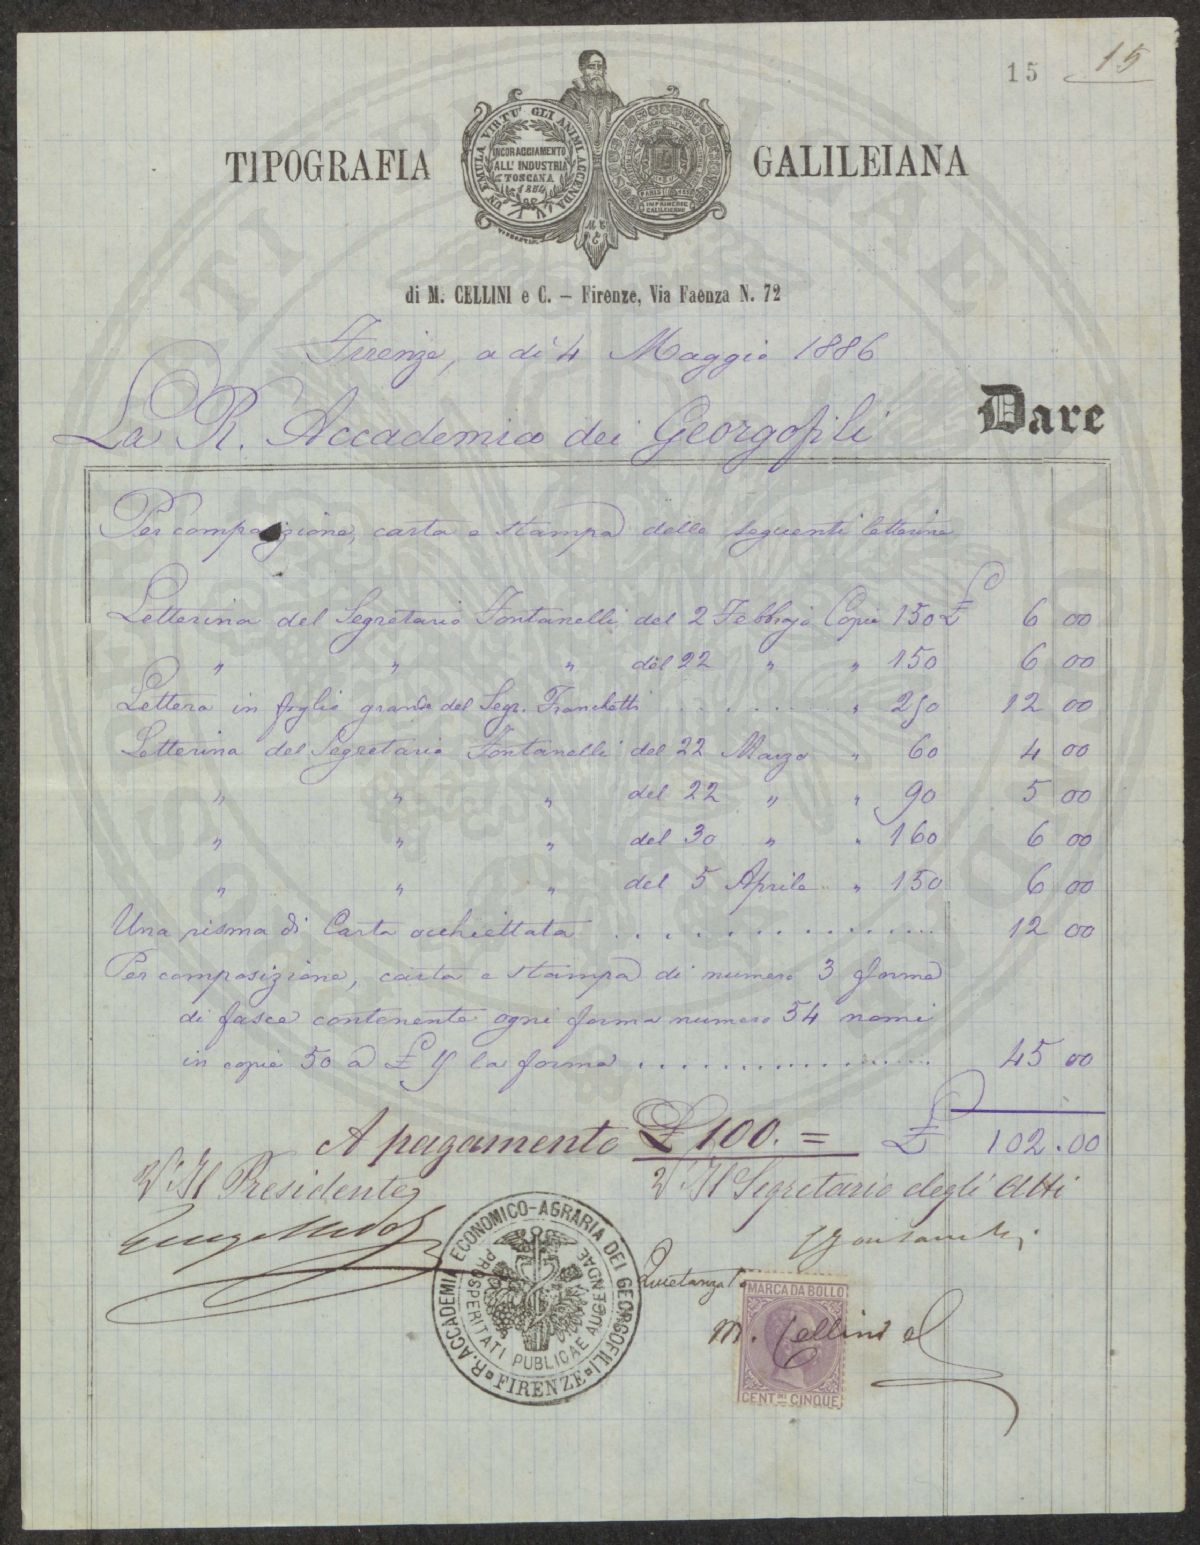 15 15
TIPOGRAFIA GALILEIANA
UN EMULA VIRTU' GLI ANIMI ACCENDA
INCORAGGIAMENTO
ALL' INDUSTRIA
TOSCANA
1854
di M. CELLINI e C. — Firenze, Via Faenza N. 72
Firenze, a di 4 Maggio 1886
La R. Accademia dei Georgofili Dare
Per composizione, carta e stampa delle seguenti letterine
Letterina del Segretario Fontanelli del 2 Febbrajo Copie 150 £ 6 00
" " " del 22 " " 150 6 00
Lettera in foglio grande del Segr. Franchetti . . . . . . . . . " 250 12 00
Letterina del Segretario Fontanelli del 22 Marzo " 60 4 00
" " " del 22 " " 90 5 00
" " " del 30 " " 160 6 00
" " " del 5 Aprile " 150 6 00
Una risma di Carta occhiettata . . . . . . . . . . . . . . . . 12 00
Per composizione, carta e stampa di numero 3 forme
di fasce contenente ogni forma numero 54 nomi
in copie 50 a £ la forma . . . . . . . . . . . . . . . . 45 00
A pagamento £ 100. = £ 102.00
V° Il Presidente V° Il Segretario degli Atti
R. ACCADEMIA ECONOMICO-AGRARIA DEI GEORGOFILI
PROSPERITATI PUBLICAE AUGENDAE
FIRENZE
Quietanzat
MARCA DA BOLLO
M. Cellini e C
CENT. MI CINQUE